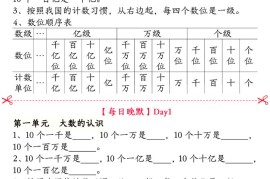 3、按照我国的计数习惯，从右边起，每四个数位是一级。
4、数位顺序表
数级 … 亿级 万级 个级
数位 … 千亿位 百亿位 十亿位 亿位 千万位 百万位 十万位 万位 千位 百位 十位 个位
计数单位 … 千亿 百亿 十亿 亿 千万 百万 十万 万 千 百 十 个
【每日晚默】Day1
第一单元 大数的认识
1、10 个一千是____，10 个一万是____，10 个十万是____，
10 个一百万是____。
2、10 个一千万是____，10 个一亿是____，10 个十亿是____，
10 个一百亿是____。